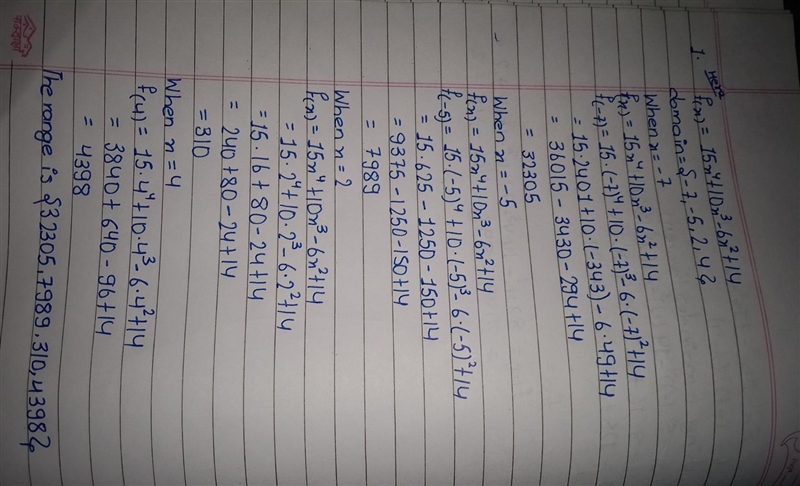 1. Here
f(x) = 15x⁴+10x³-6x²+14
domain = {-7,-5,2,4}
When x = -7
f(x) = 15x⁴+10x³-6x²+14
f(-7) = 15·(-7)⁴+10·(-7)³-6·(-7)²+14
= 15·2401+10·(-343)-6·49+14
= 36015-3430-294+14
= 32305
When x = -5
f(x) = 15x⁴+10x³-6x²+14
f(-5) = 15·(-5)⁴+10·(-5)³-6·(-5)²+14
= 15·625-1250-150+14
= 9375-1250-150+14
= 7989
When x = 2
f(x) = 15x⁴+10x³-6x²+14
= 15·2⁴+10·2³-6·2²+14
= 15·16+80-24+14
= 240+80-24+14
= 310
When x = 4
f(4) = 15·4⁴+10·4³-6·4²+14
= 3840+640-96+14
= 4398
The range is {32305,7989,310,4398}